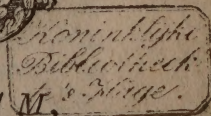 Koninklijke
Bibliotheek
te 's Hage.
M.